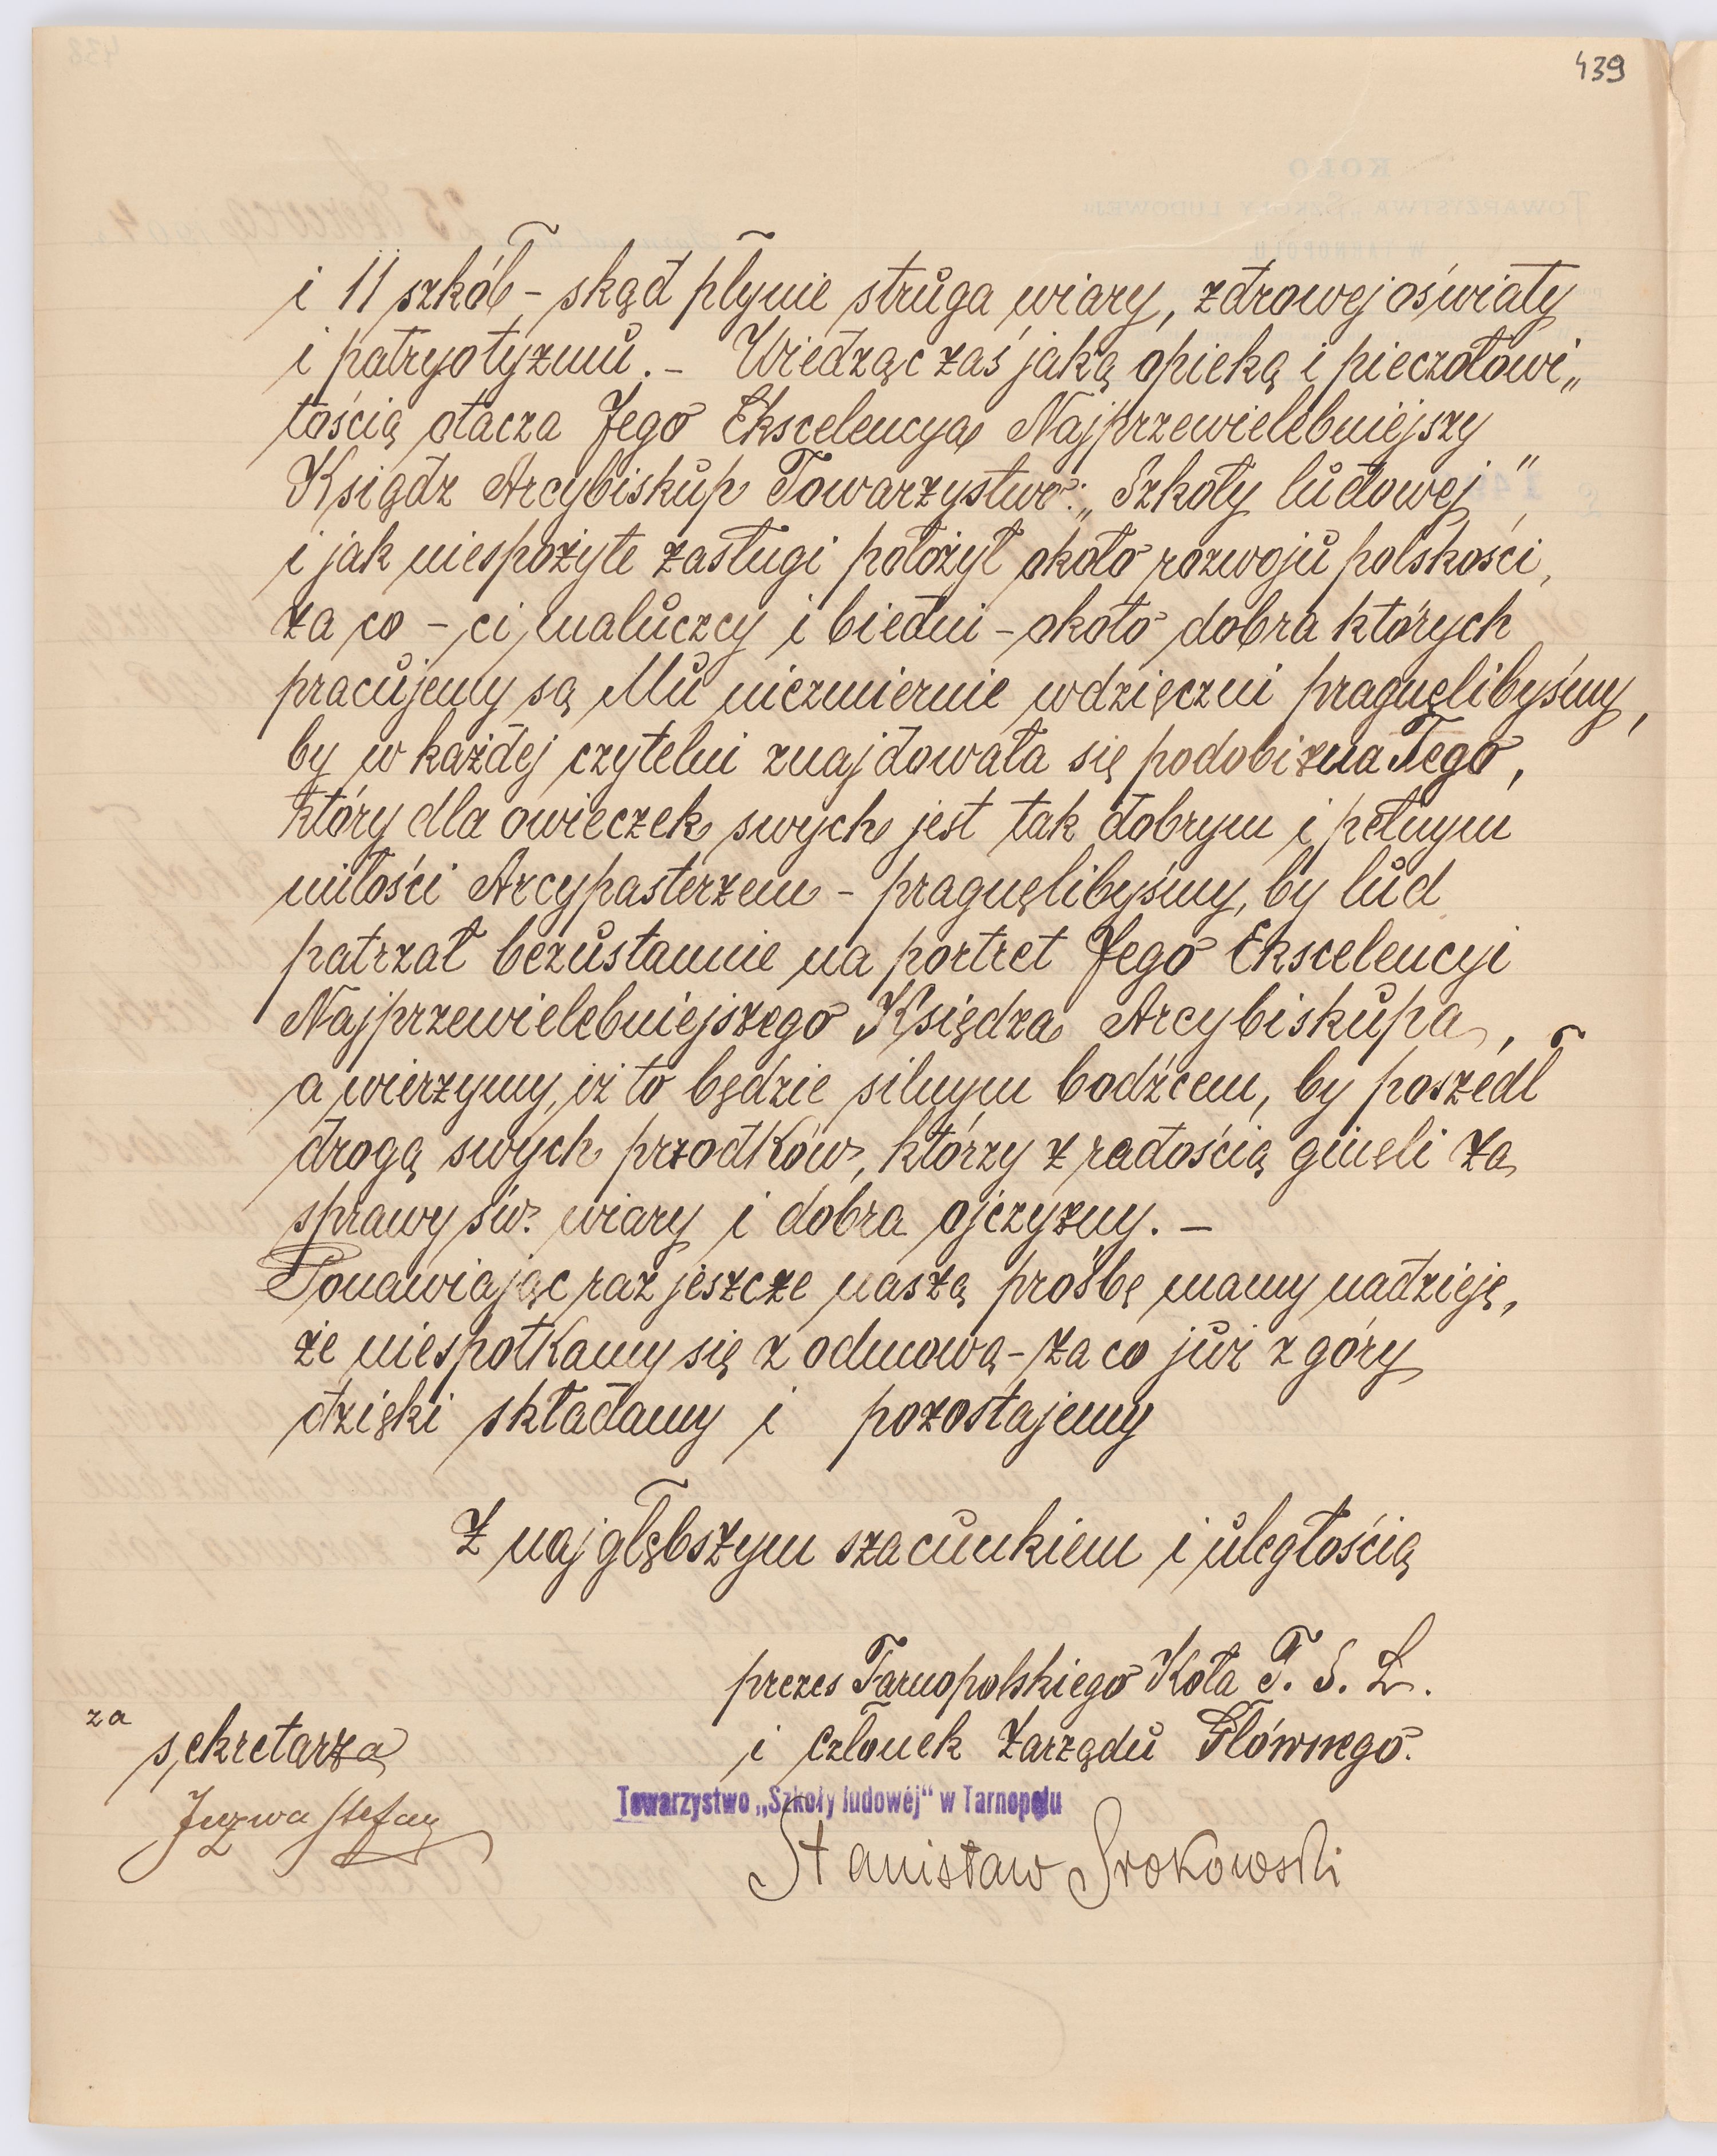 439
i 11 szkół – skąd płynie struga wiary, zdrowej oświaty
i patryotyzmu. – Wiedząc zaś jaką opieką i pieczołowi„
tością otacza Jego Ekscelencya Najprzewielebniejszy
Ksiądz Arcybiskup Towarzystwo: „Szkoły ludowej”
i jak niespożyte zasługi położył około rozwoju polskości,
za co – ci maluczcy i biedni – około dobra których
pracujemy są Mu niezmiernie wdzięczni pragnęlibyśmy,
by w każdej czytelni znajdowała się podobizna Tego,
który dla owieczek swych jest tak dobrym i pełnym
miłości Arcypasterzem – pragnęlibyśmy, by lud
patrzał bezustannie na portret Jego Ekscelencyi
Najprzewielebniejszego Księdza Arcybiskupa,
a wierzymy, iż to będzie silnym bodźcem, by poszedł
drogą swych przodków, którzy z radością ginęli za
sprawy św. wiary i dobra ojczyzny. –
Ponawiając raz jeszcze naszą prośbę mamy nadzieję,
że niespotkamy się z odmową – za co już z góry
dzięki składamy i pozostajemy
Z najgłębszym szacunkiem i uległością
prezes Tarnopolskiego Koła T. S. L.
i członek Zarządu Głównego.
za
sekretarza
Towarzystwo „Szkoły ludowej“ w Tarnopolu
Juzwa Stefan
Stanisław Srokowski